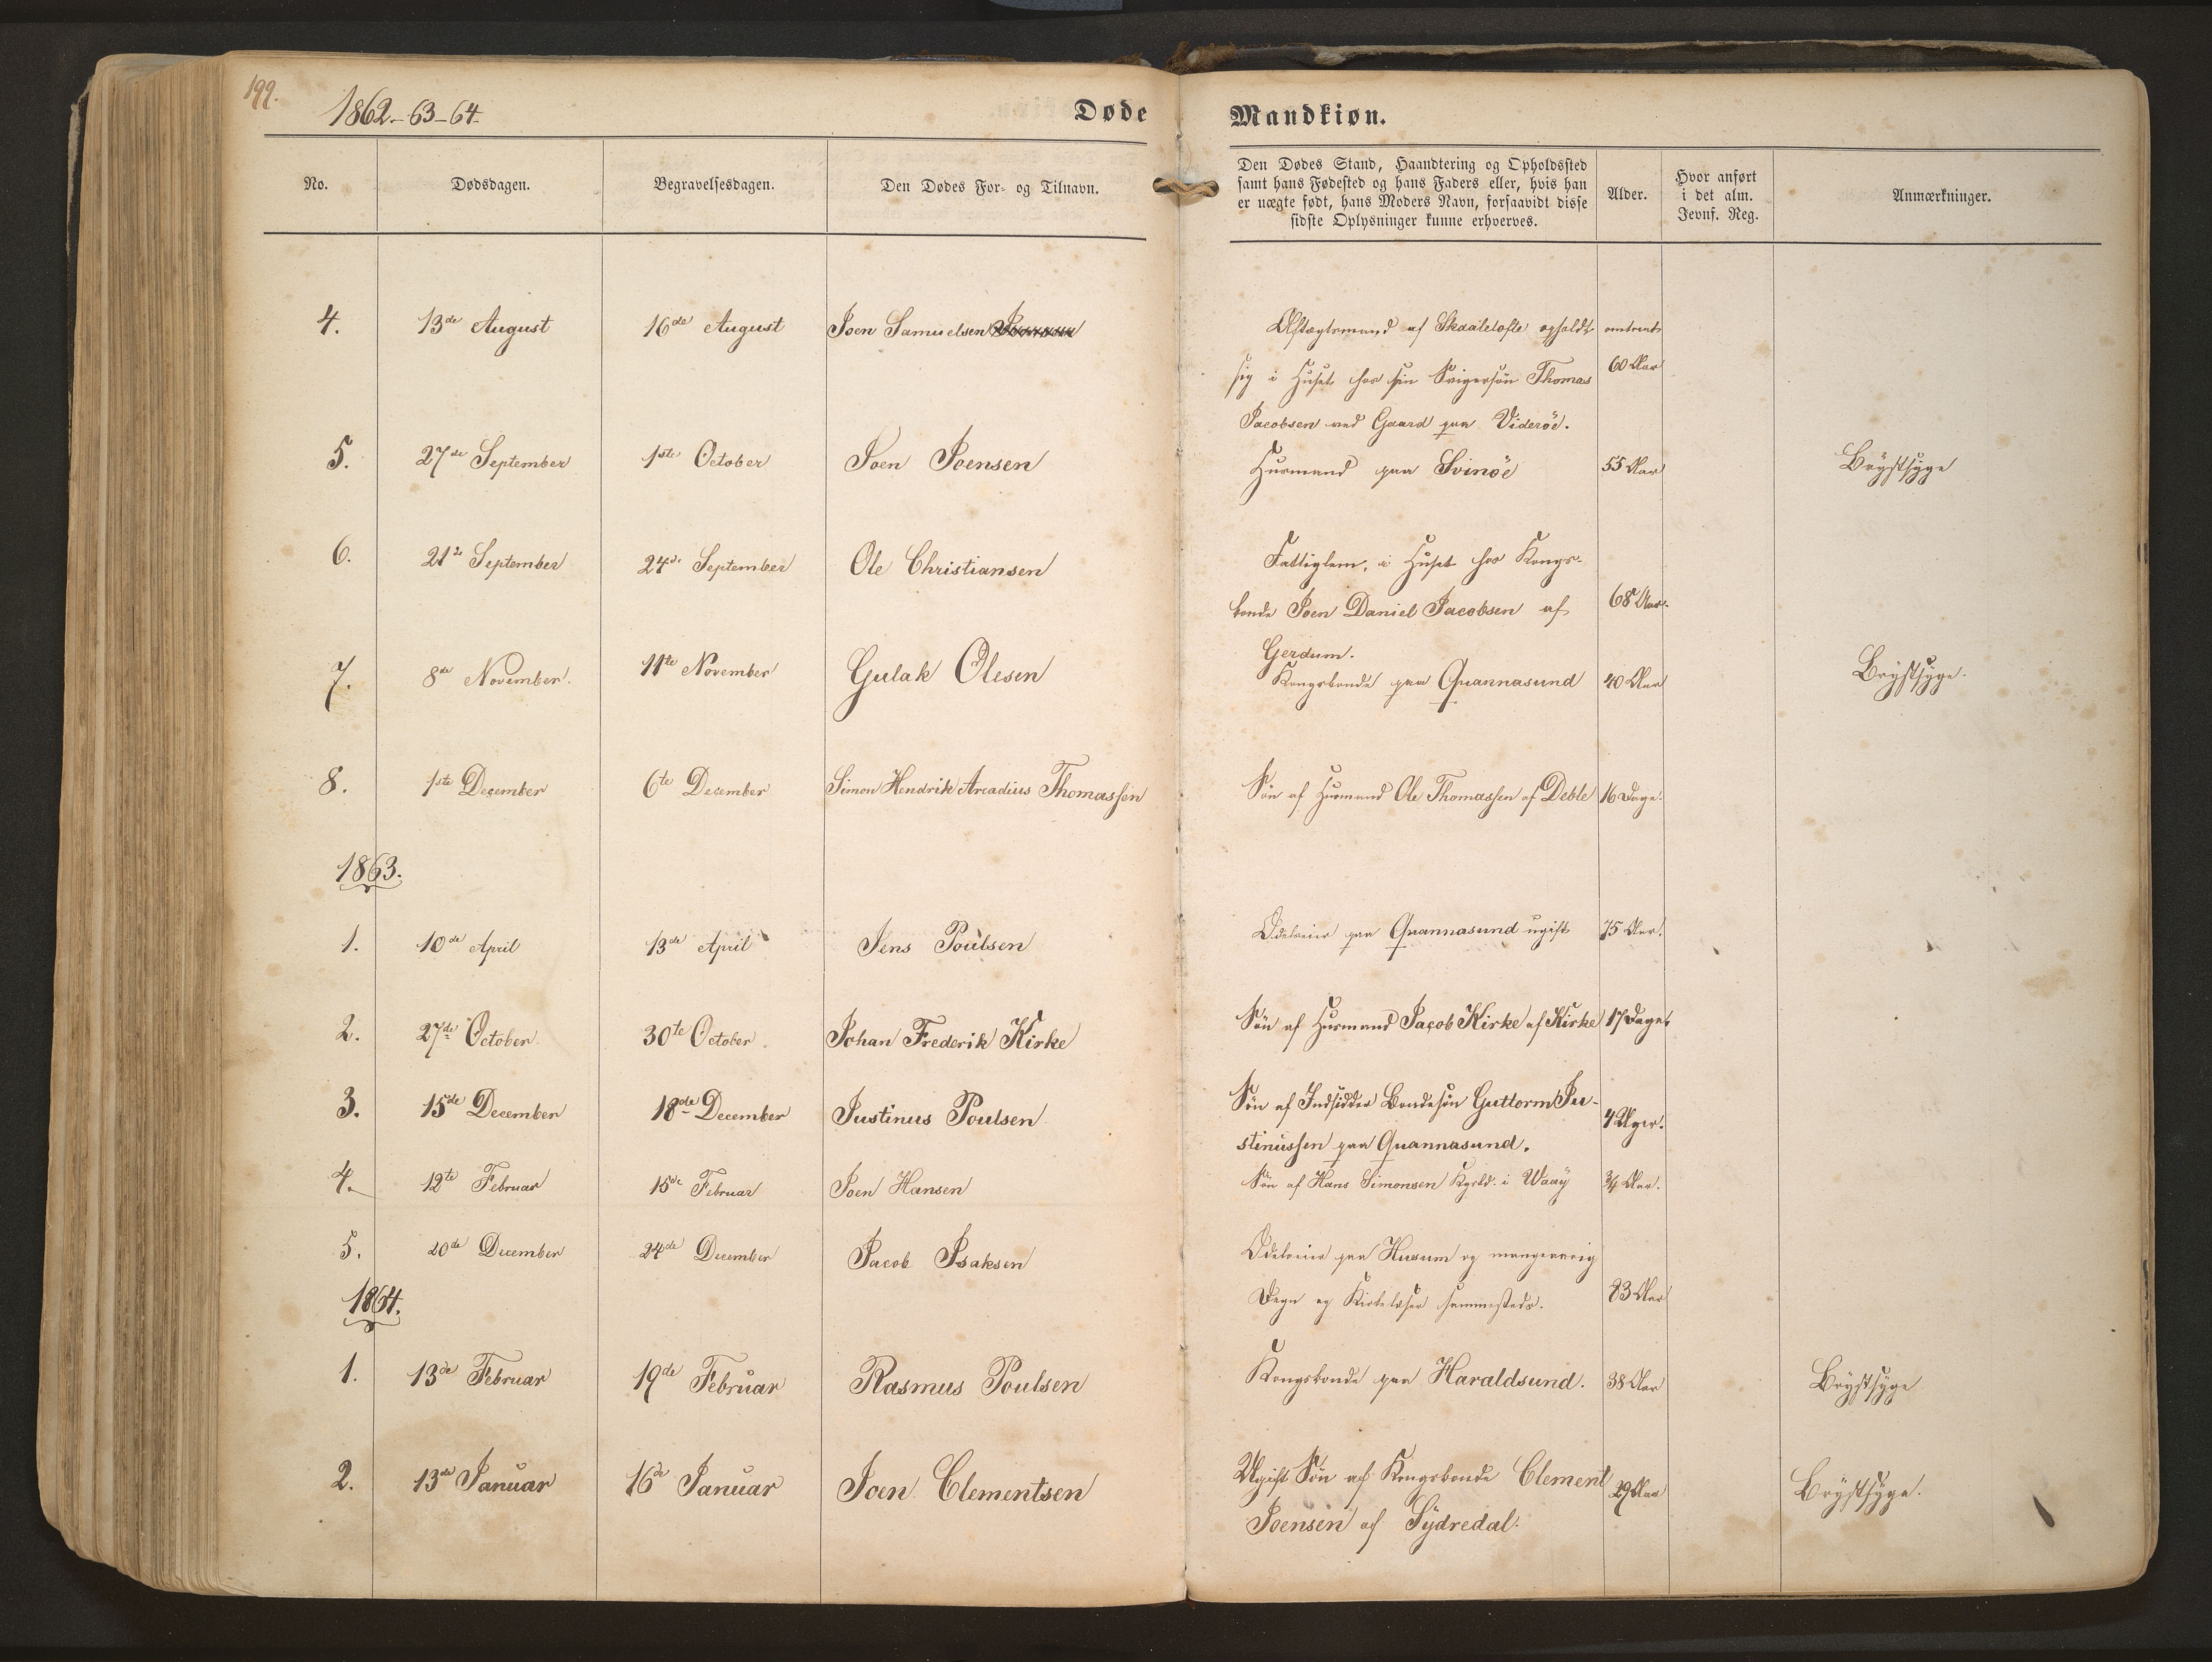 199.
1862.-63-64.
Døde
Mandkiøn.
No.
Dødsdagen.
Begravelsesdagen.
Den Dødes For- og Tilnavn.
Den Dødes Stand, Haandtering og Opholdssted
samt hans Fødested og hans Faders eller, hvis han
er uægte født, hans Moders Navn, forsaavidt disse
sidste Oplysninger kunne erhverves.
Alder.
Hvor anført
i det alm.
Jevnf. Reg.
Anmærkninger.
4. 13de August 16de August Joen Samuelsen Aftægtsmand af Skaaletofte opholdt omtrent
sig i Huset hos sin Svigersön Thomas 60 Aar
Jacobsen ved Gaard paa Videröe.
5. 27de September 1ste October Joen Joensen Husmand paa Svinöe 55 Aar Brÿstsÿge
6. 21de September 24de September Ole Christiansen Fattiglem, i Huset hos Kongs-
bonde Joen Daniel Jacobsen af 68 Aar.
Gerdum.
7. 8de November. 11te November Gulak Olesen Kongsbonde paa Quannasund 40 Aar Brÿstsÿge.
8. 1ste December 6te December Simon Hendrik Arcadius Thomassen Sön af Husmand Ole Thomassen af Deble 16 Dage.
1863.
1. 10de April 13de April Jens Poulsen Odelseier paa Quannasund ugift 75 Aar.
2. 27de October. 30te October. Johan Frederik Kirke Sön af Husmand Jacob Kirke af Kirke 17 Dage
3. 15de December 18de December Justinus Poulsen Sön af Indsidder Bondesön Guttorm Ju-
stinussen paa Quannasund. 4 Uger.
4. 12te Februar 15de Februar Joen Hansen Sön af Hans Simonsen i Waaÿ 3/4 Aar.
5. 20de December 24de December Jacob Isaksen Odelseier paa Husum og mangeaarig
Degn og Kirkelæser sammesteds. 83 Aar
1864.
1. 13de Februar 19de Februar Rasmus Poulsen Kongsbonde paa Haraldsund. 38 Aar Brÿstsÿge
2. 13de Januar 16de Januar Joen Clementsen Ugift Sön af Kongsbonde Clement 29 Aar Brÿstsÿge.
Joensen af Sÿdredal.